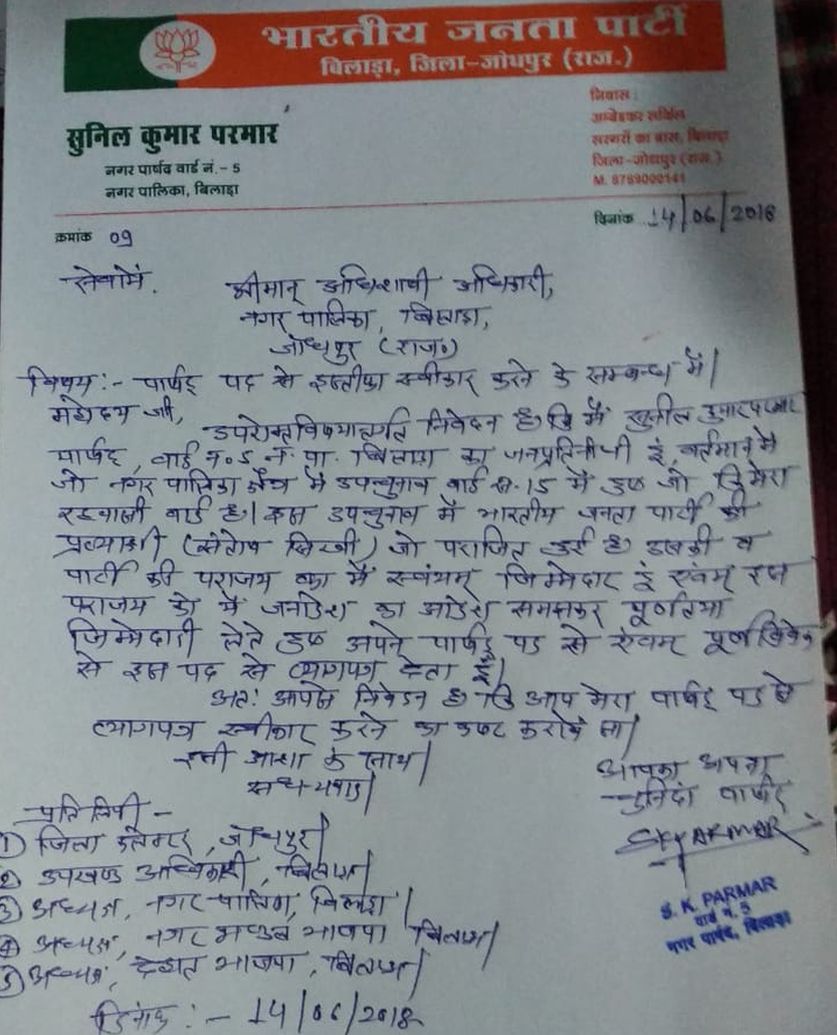 भारतीय जनता पार्टी
बिलाड़ा, जिला-जोधपुर (राज.)
सुनिल कुमार परमार
नगर पार्षद वार्ड नं.- 5
नगर पालिका, बिलाड़ा
निवास :
अम्बेडकर सर्किल
सरगरों का बास, बिलाड़ा
जिला-जोधपुर (राज.)
दिनांक 14/06/2018
क्रमांक 09
सेवामें.
श्रीमान् अधिशाषी अधिकारी,
नगर पालिका, बिलाड़ा,
जोधपुर (राज०)
विषय:- पार्षद पद से इस्तीफा स्वीकार करने के सम्बन्ध में।
महोदय जी,
उपरोक्त विषयान्तर्गत निवेदन है कि मैं सुनील कुमार परमार
पार्षद, वार्ड न.5 न. पा. बिलाड़ा का जनप्रतिनीधी हूं, वर्तमान में
जो नगर पालिका क्षेत्र में उपचुनाव वार्ड स.15 में हुए जो कि मेरा
रहवासी वार्ड है। इस उपचुनाव में भारतीय जनता पार्टी की
प्रत्याशी (संतोष) जो पराजित हुई है उसकी व
पार्टी की पराजय का मैं स्वंयम् जिम्मेदार हूं एवंम् इस
पराजय को मैं जनादेश का आदेश समझकर पूर्णतया
जिम्मेदारी लेते हुए अपने पार्षद पद से एंवम् पूर्ण विवेक
से इस पद से त्यागपत्र देता हूँ।
अत: आपसे निवेदन है कि आप मेरा पार्षद पद से
त्यागपत्र स्वीकार करने का कष्ट करावें सा।
इसी आशा के साथ।
सधन्यवाद।
आपका अपना
चुनिंदा पार्षद
SKPARMAR
S. K. PARMAR
वार्ड नं. 5
नगर पार्षद, बिलाड़ा
प्रतिलिपी -
① जिला कलेक्टर, जोधपुर।
② उपखण्ड अधिकारी, बिलाड़ा।
③ अध्यक्ष, नगर पालिका, बिलाड़ा।
④ अध्यक्ष, नगर मण्डल भाजपा बिलाड़ा।
⑤ अध्यक्ष, देहात भाजपा, बिलाड़ा।
दिनांक :- 14/06/2018